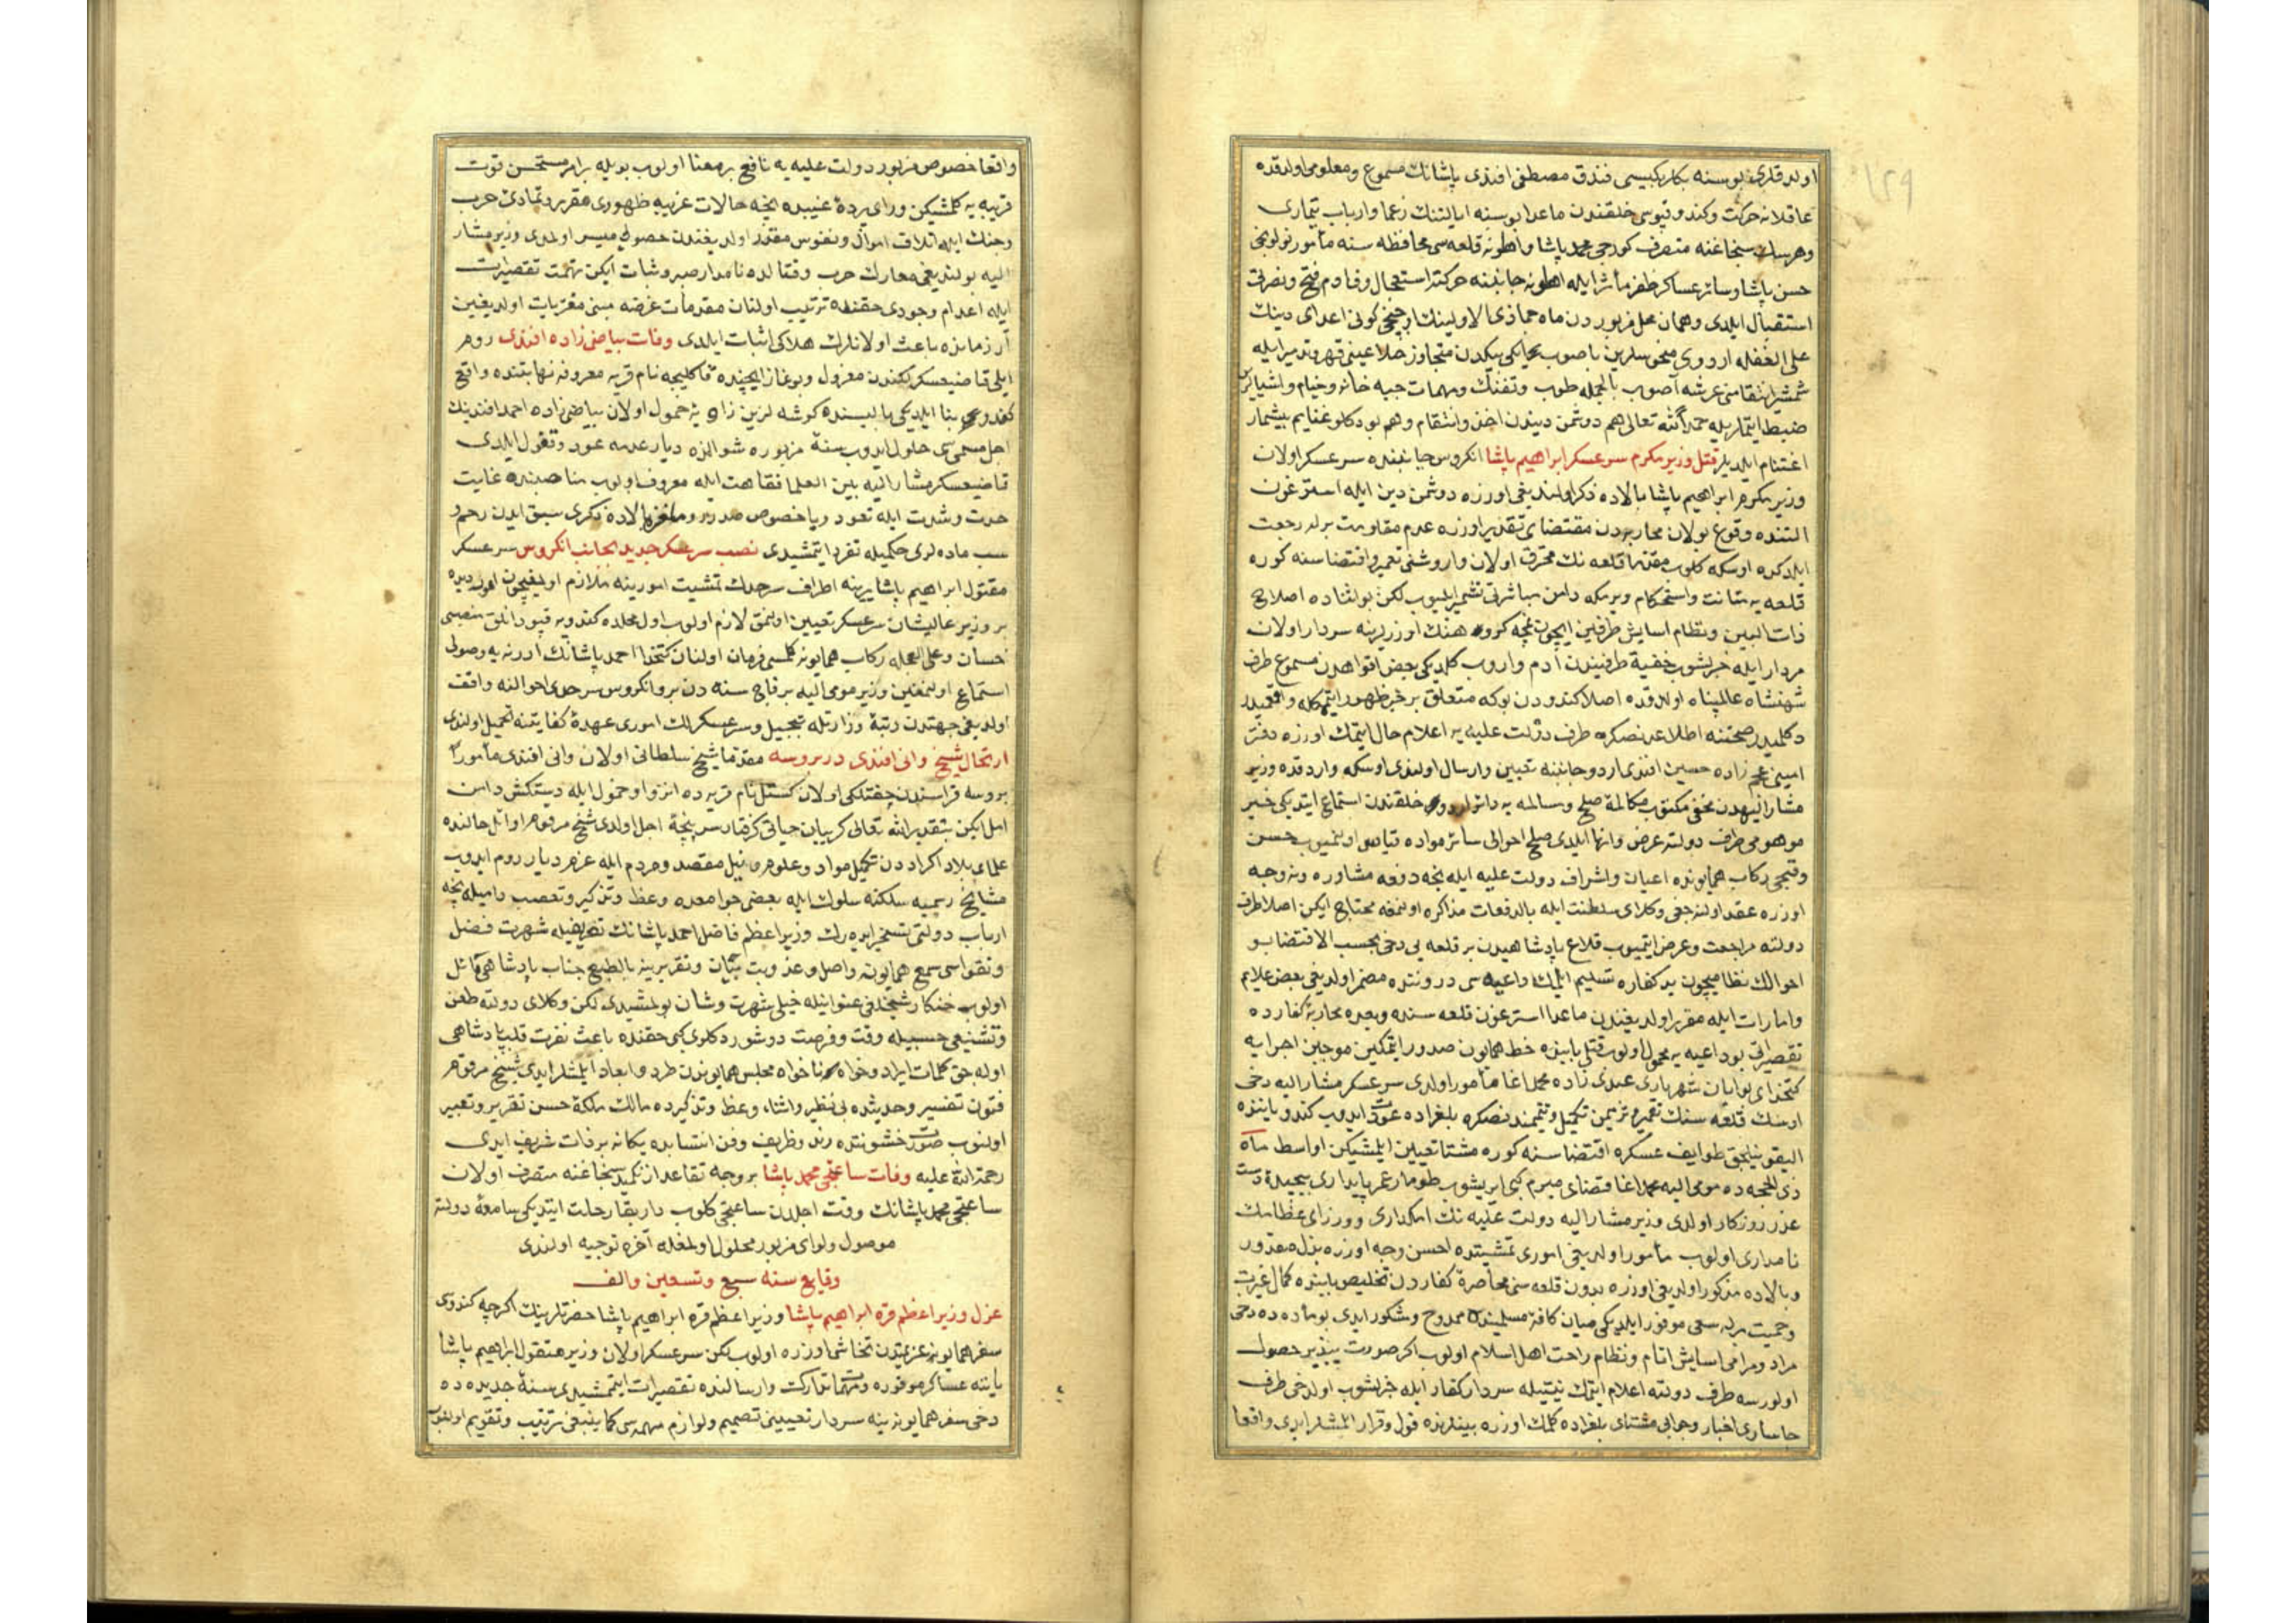 اولدقلرى بوسنه بكلربكيسى فندق مصطفى افندى پاشانك مسموع ومعلومى اولدقده
عاقلانه حركت وكندو قپوسى خلقندن ماعدا بوسنه ايالتنك زعما وارباب تيمارى
وهرسك سنجاغنه متصرف كورجى محمد پاشا و قلعه سى محافظه سنه مأمور
حسن پاشا وسائر عساكر ظفر مآثر ايله جانبنه حركته استعجال وقادم فتح ونصرتى
استقبال ايلدى وهمان محل مزبوردن ماه جماذى الاولينك كونى اعداى دينك
على الغفله اردوى باصوب متجاوز ايله
شمشير انتقامى آصوب بالجمله طوب وتفنك ومهمات جبه خانه وخيام واشيالرين
ضبط ايتديلر حمداً لله تعالى هم دوشمن ديندن اخذ وانتقام وهم بو دكلو غنايم بيشمار
اغتنام ايلديلر قتل وزير مكرم سر عسكر ابراهيم پاشا انكروس جانبنده سر عسكر اولان
وزير مكرم ابراهيم پاشا بالاده ذكر اولنديغى اوزره دوشمن دين ايله استرغون
التنده وقوع بولان محاربه دن مقتضاى تقدير اوزره عدم مقاومت برله رجعت
ايلدكده اوسكه كلوب مقدما قلعه نك محترق اولان واروشنى تعمير واقتضاسنه كوره
قلعه يه متانت واستحكام ويرمكه دامن مباشرتى تشمير ايليوب لكن بو اثناده اصلاح
ذات البين ونظام اسايش طرفين ايچون نچه كروه هنك اوزرلرينه سردار اولان
مردار ايله خبرلشوب خفية طرفيندن آدم واروب كلديكى بعض افواهدن مسموع طرف
شهنشاه عالمپناه اولدقده اصلا كندودن بوكه متعلق بر خبر ظهور ايتمكله واقعميدر
دكلميدر صحتنه اطلاعدنصكره طرف دولت عليه يه اعلام حال ايتمك اوزره دفتر
امينى عجم زاده حسين افندى اردو جانبنه تعيين وارسال اولندى اوسكه واردقده وزير
مشار اليهدن مخفى مكتوب مكالمهٔ صلح ومسالمه يه دائر اردو خلقندن استماع ايتديكى خبر
موهومى طرف دولته عرض وانها ايلدى صلح احوالى سائر مواده قياس اولنميوب حسن
وقبحى ركاب همايونده اعيان واشراف دولت عليه ايله نچه دفعه مشاوره ونه وجه
اوزره عقد اولنه جغى وكلاى سلطنت ايله بالدفعات مذاكره اولنمغه محتاج ايكن اصلا طرف
دولته مراجعت وعرض ايتميوب قلاع پادشاهيدن بر قلعه يى دخى بحسب الاقتضا بو
احوالك نظاميچون يد كفاره تسليم ايلمك داعيه سى دروننده مضمر اولديغى بعض علايم
وامارات ايله مقرر اولديغندن ماعدا استرغون قلعه سنده وبعده محاربهٔ كفارده
تقصيراتى بو داعيه يه محمول اولوب قتلى بابنده خط همايون صدور ايتمكين موجبين اجرايه
كتخداى بوابان شهريارى عبدى زاده محمد اغا مأمور اولدى سر عسكر مشار اليه دخى
اوسك قلعه سنك تعمير وترميمن تكميل وتتميمدنصكره بلغراده عودت ايدوب كندو يانندە
اليقونيلجق طوايف عسكره اقتضاسنه كوره مشتا تعيين ايلمشيكن اواسط ماه
ذى الحجه ده مومى اليه محمد اغا قضاى مبرم كبى ايريشوب طومار عمر پايدارى پيچيدهٔ دست
عزر روزكار اولدى وزير مشار اليه دولت عليه نك امكدارى ووزراى عظامك
نامدارى اولوب مأمور اولديغى امورى تمشيتده احسن وجه اوزره بذل مقدور
وبالاده مذكور اولديغى اوزره بدون قلعه سنى محاصرهٔ كفاردن تخليص بابنده كمال غيرت
وحميت برله سعى موفور ايلديكى ميان كافهٔ مسلمينده ممدوح ومشكور ايدى بو ماده ده دخى
مراد ومرامى اسايش انام ونظام راحت اهل اسلام اولوب اكر صورت پذير حصول
اولورسه طرف دولته اعلام ايتمك نيتيله سردار كفار ايله خبرلشوب اولدخى طرف
جاسارى اخبار وجوابى مشتاى بلغراده كلمك اوزره بينلرنده قول وقرار ايلمشلر ايدى واقعا
واقعا خصوص مزبور دولت عليه يه نافع بر معنا اولوب بويله بر امر مستحسن قوت
قريبه يه كلمشيكن وراى پردهٔ غيبيده نچه حالات غريبه ظهورى مقرر وتمادئ حرب
وجنك ايله اتلاف اموال ونفوس مقدر اولديغندن حصولى ميسر اولمدى وزير مشار
اليه بولنديغى معارك حرب وقتالده نامدار صبر وثبات ايكن تهمت تقصيرات
ايله اعدام وجودى حقنده ترتيب اولنان مقدمات غرضه مبنى مفتريات اولديغين
آز زمانده باعث اولانلرك هلاكى اثبات ايلدى وفات بياضى زاده افندى روم
ايلى قاضيعسكرلكندن معزول وبوغاز ايچنده قاكليجه نام قريه معروفه نهايتنده واقع
كندو بنا ايلديكى ياليسنده كوشه كزين زاويهٔ خمول اولان بياضى زاده احمد افندينك
اجل مسمى سى حلول ايدوب سنهٔ مزبوره شوالنده ديار عدمه عود وقفول ايلدى
قاضيعسكر مشار اليه بين العلما فقاهت ايله معروف اولوب مناصبنده غايت
حدت وشدت ايله تعود ويا خصوص صدر رومده بالاده ذكرى سبق ايدن رجم و
سب ماده لرى حكميله تفرد ايتمشيدى نصب سر عسكر جديد بجانب انكروس سر عسكر
مقتول ابراهيم پاشا يرينه اطراف سرحدك تمشيت امورينه ملازم اولمغيچون اموردیده
بر وزير عاليشان سر عسكر تعيين اولنمق لازم اولوب اول محلده كندويه قپودانلق منصبى
احسان وعلى العجله ركاب همايونه كلمسى فرمان اولنان كتخدا احمد پاشانك ادرنه يه وصولى
استماع اولنمغين وزير مومى اليه بر قاچ سنه دن برو انكروس سرحدى احوالنه واقف
اولديغى جهتدن رتبهٔ وزارتله تبجيل وسر عسكرلك امورى عهدهٔ كفايتنه تحميل اولندى
ارتحال شيخ وانى افندى در بروسه مقدما شيخ سلطانى اولان وانى افندى مأموراً
بروسه قراسندن چفتلكى اولان كستل نام قريه ده انزوا وخمول ايله دستكش دامن
امل ايكن بتقدير الله تعالى كريبان حياتى كرفتار سر پنجهٔ اجل اولدى شيخ مرقوم اوائل حالنده
علماى بلاد اكراددن تكميل مواد وعلومه نيل مقصد ومرام ايله عزم ديار روم ايدوب
مشايخ رسميه سلكنه سلوك ايله بعض جوامعده وعظ وتذكير وتعصب داميله نچه
ارباب دولتى تسخير ايده رك وزير اعظم فاضل احمد پاشانك تعريفيله شهرت فضل
وتقواسى سمع همايونه واصل وعذوبت بيان وتقريرينه بالطبع جناب پادشاهى مائل
اولوب خنكار شيخلكى عنوانيله خيلى شهرت وشان بولمشيدى لكن وكلاى دولته طعن
وتشنيعى حسبيله وقت وفرصت دوشوردكلرى كبى حقنده باعث نفرت قلب پادشاهى
اوله جق كلمات ايراد وخواه ناخواه مجلس همايوندن طرد وابعاد ايلمشلر ايدى شيخ مرقوم
فنون تفسير وحديثده بى نظير واشتباه وعظ وتذكيرده مالك ملكهٔ حسن تقرير وتعبير
اولنوب صورت خشونتده رند وظريف وفن انتسابده يكانه بر ذات شريف ايدى
رحمة الله عليه وفات ساعتجى محمد پاشا بر وجه تقاعد ازنكميد سنجاغنه متصرف اولان
ساعتجى محمد پاشانك وقت اجلدن ساعتجى كلوب دار بقايه رحلت ايتديكى سامعهٔ دولته
موصول ولواى مزبور محلول اولمغله آخره توجيه اولندى
وقايع سنه سبع وتسعين والف
عزل وزير اعظم قره ابراهيم پاشا وزير اعظم قره ابراهيم پاشا حضرتلرينك اكرچه كندوى
سفر همايونه عزيمتدن تحاشى اوزره اولوب لكن سر عسكر اولان وزير مقتول ابراهيم پاشا
يانه عساكر موفوره ومهمات تدارك وارسالنده تقصيرات ايتمشيدى سنهٔ جديده ده
دخى سفر همايونه ينه سردار تعيينى تصميم ولوازم مهمه سى كما ينبغى ترتيب وتقويم اولنوب